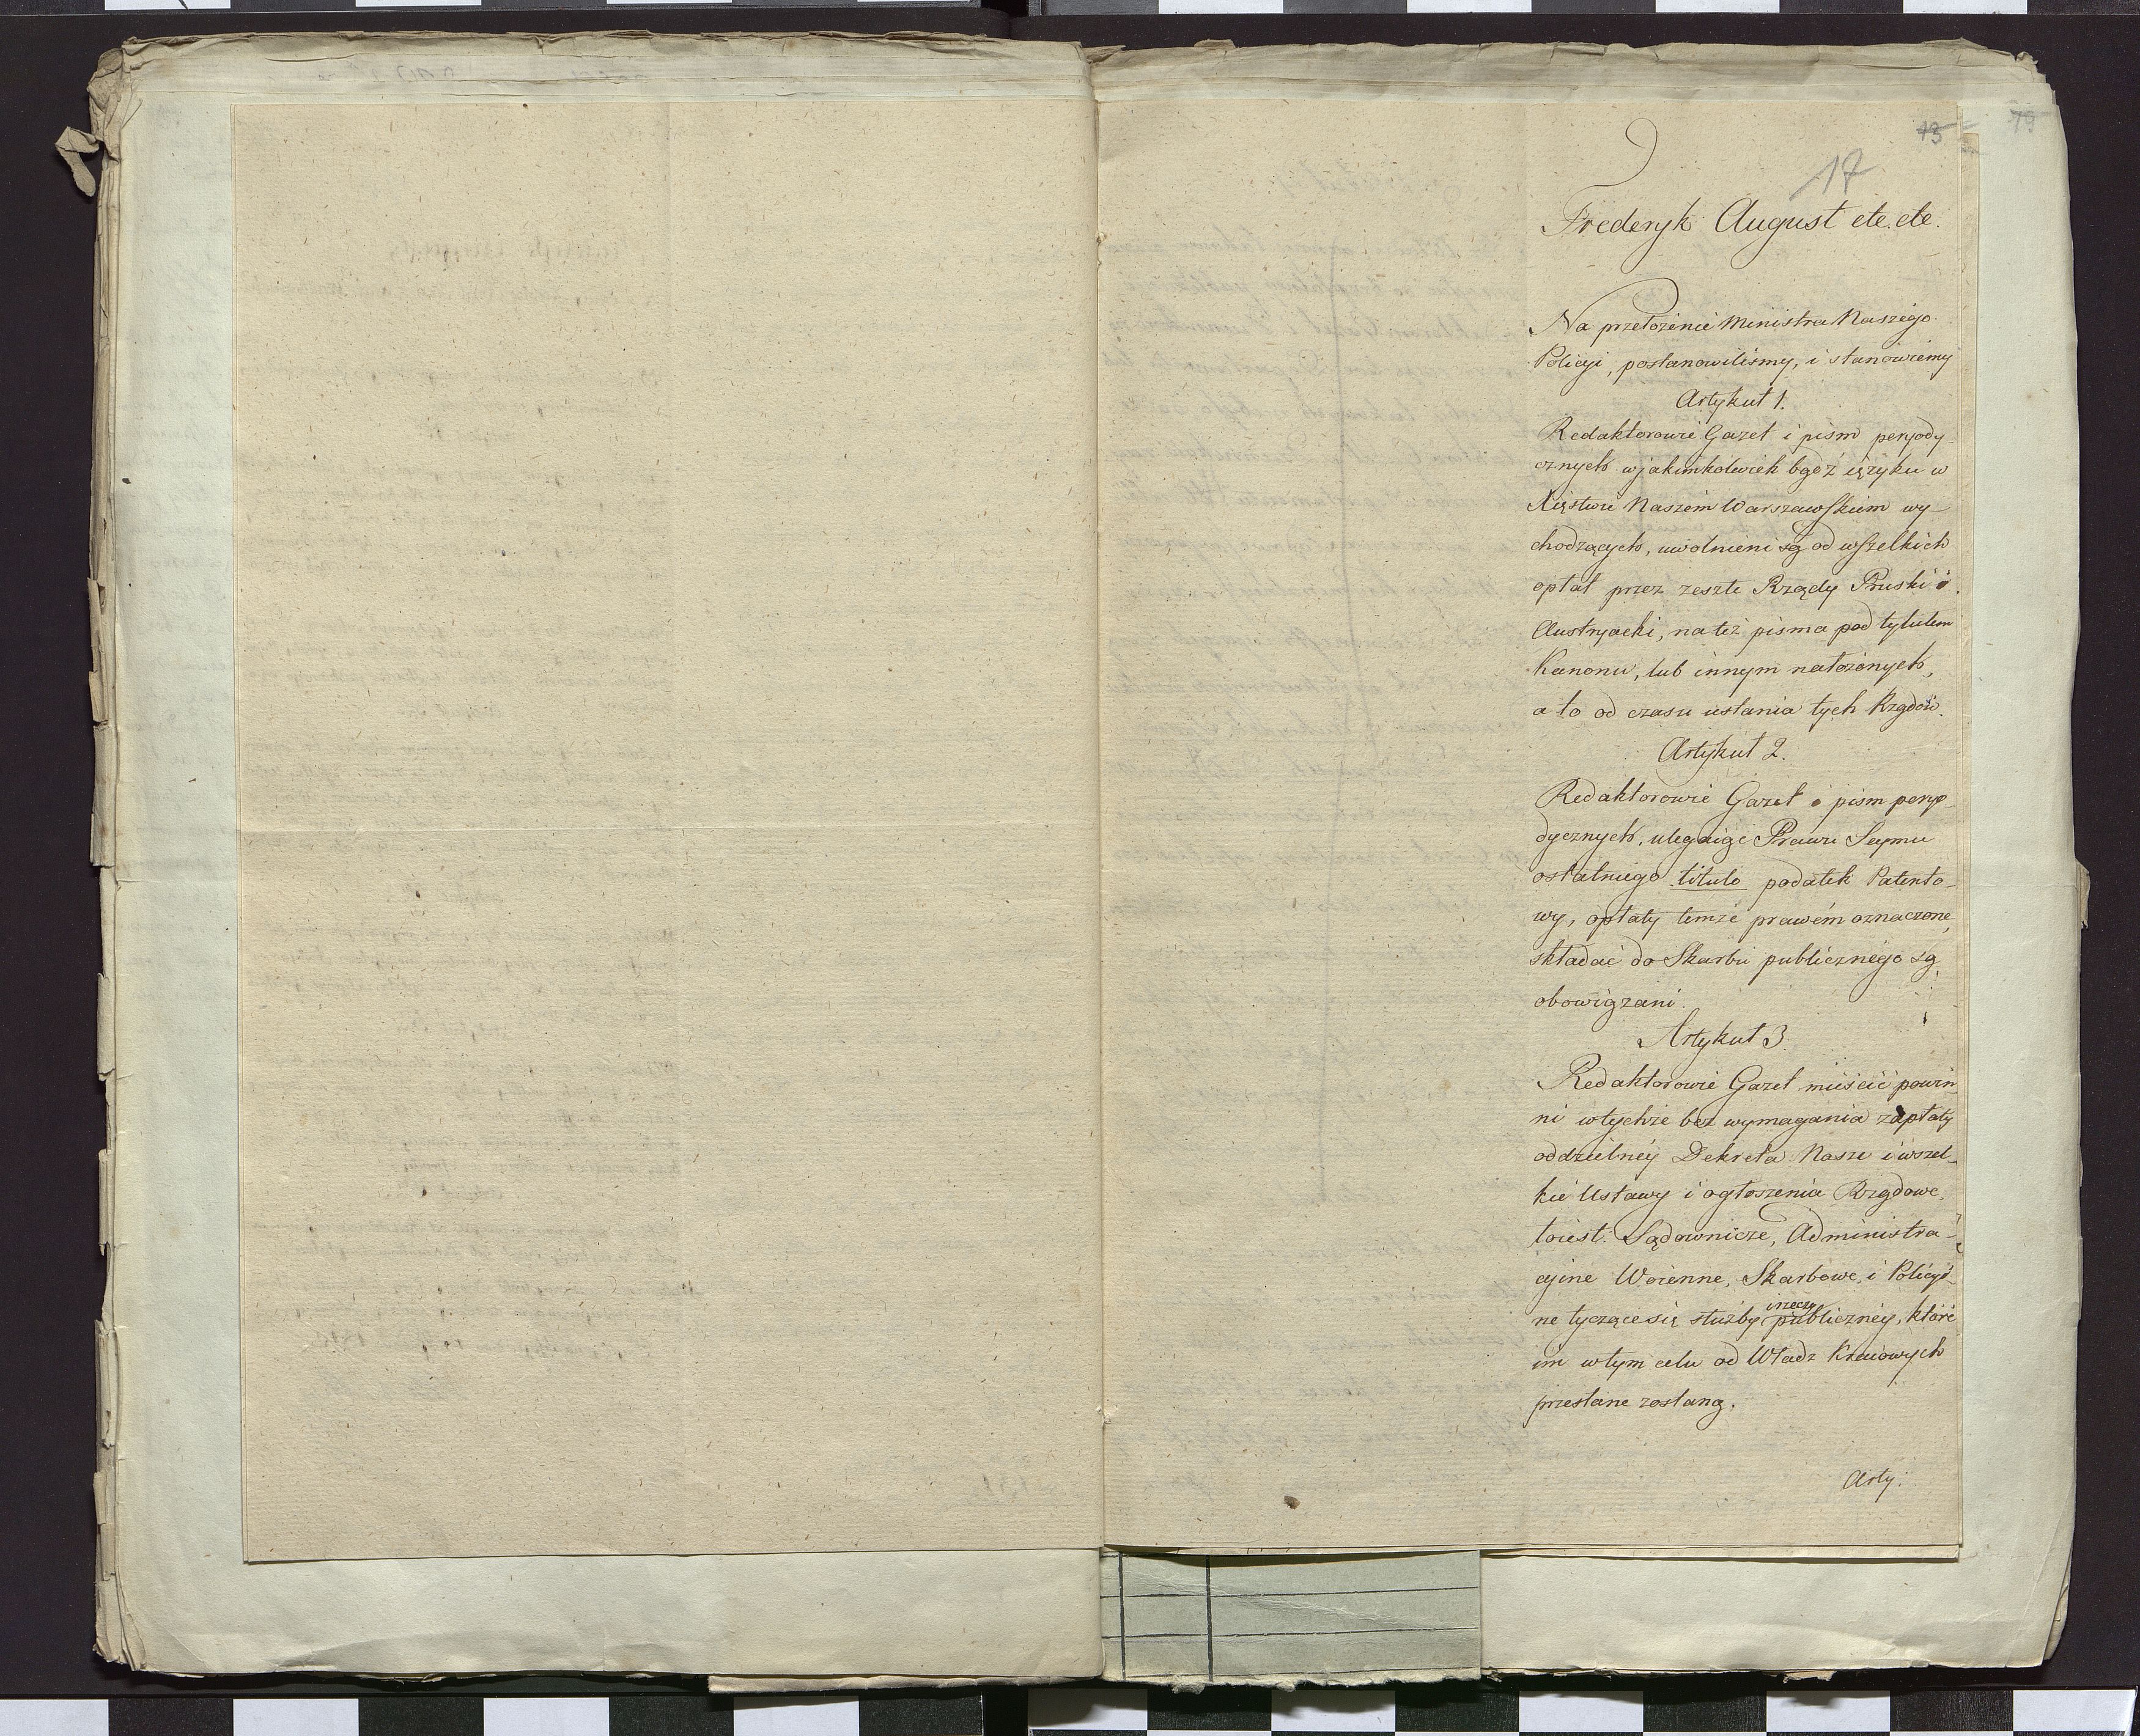 13
19
17
Frederyk August etc. etc.
Na przełożenie Ministra Naszego
Policyi, postanowiliśmy, i stanowiemy
Artykuł 1.
Redaktorowie Gazet i pism peryody-
cznych w jakimkolwiek bądź ięzyku w
Xięstwie Naszem Warszawskiem wy-
chodzących, uwolnieni są od wszelkich
opłat przez zeszłe Rządy Pruski i
Austryacki, na też pisma pod tytułem
Kanonu, lub innym nałożonych,
a to od czasu ustania tych Rządów.
Artykuł 2.
Redaktorowie Gazet i pism peryo-
dycznych, ulegaiąc Prawu Seymu
ostatniego titulo podatek Patento-
wy, opłaty temże prawem oznaczone,
składać do Skarbu publicznego są
obowiązani.
Artykuł 3
Redaktorowie Gazet mieścić powin
ni w tychże bez wymagania zapłaty
oddzielnéy Dekreta Nasze i wszel-
kie Ustawy i ogłoszenia Rządowe,
toiest: Sądownicze, Administra-
cyine Woienne, Skarbowe, i Policyi-
ne tyczące się służby i rzeczy publicznéy, które
im w tym celu od Władz Kraiowych
przesłane zostaną.
Arty: